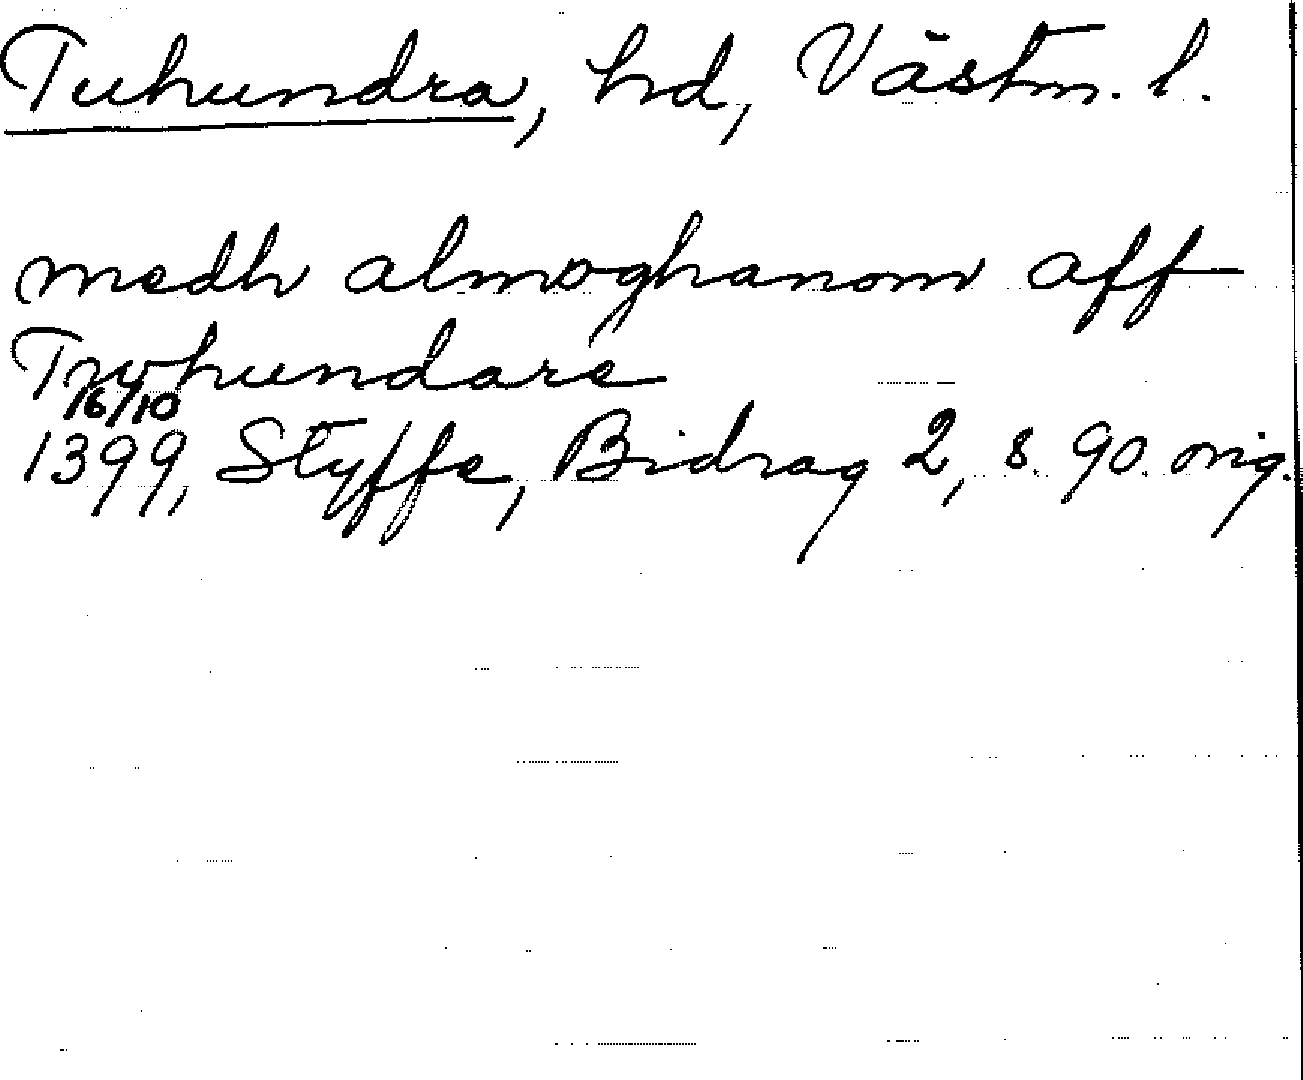 Tuhundra, hd, Västm. l.
medh almoghanom aff
Twhundare
16/10
1399, Styffe, Bidrag 2, s. 90. orig.